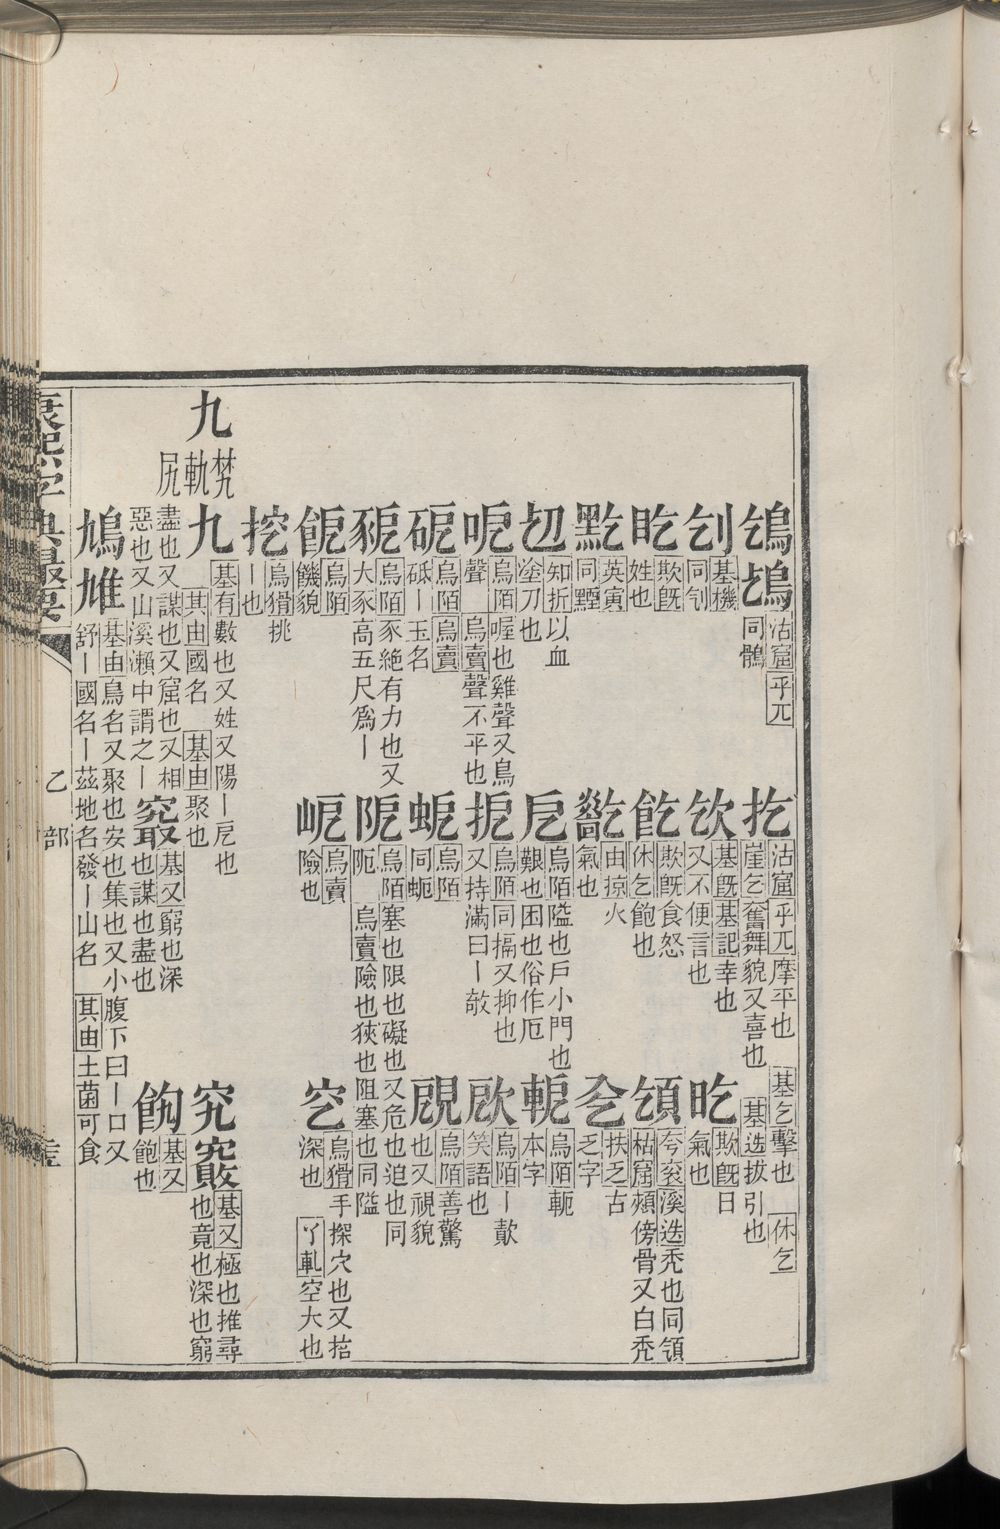 沽窟乎兀同鶻
扢沽窟乎兀摩平也 基乞擊也 休乞崖乞奮舞貌又喜也 基迄拔引也
刏基機同刉
欥基旣基記幸也又不便言也
盵欺旣日氣也
盵欺旣姓也
飥欺旣食怒休乞飽也
頜夸衮溪迭禿也同頜枯窟頰傍骨又白禿
䵝英寅同黫
由掠火氣也
仚扶乏古乏字
刧知折以血塗刀也
戹烏陌隘也戶小門也艱也困也俗作厄
軛烏陌軶本字
呝烏陌喔也雞聲又鳥聲 烏賣聲不平也
扼烏陌同搹又抑也又持滿曰丨敨
㰶烏陌丨歕笑語也
砈烏陌烏賣砥丨玉名
蚅烏陌同蚅
覛烏陌善驚也又視貌
豟烏陌豕絶有力也又大豕高五尺爲丨
阨烏陌塞也限也礙也又危也迫也同阸 烏賣險也狹也阻塞也同隘
飽烏陌饑貌
㞾烏賣險也
穵烏猾手探穴也又掐深也 丫軋空大也
挖烏猾挑丨也
九 梵軌尻
九基有數也又姓又陽丨㞑也 其由國名 基由聚也
究 基又極也推尋也竟也深也窮盡也又謀也又窟也又相惡也又山溪瀨中謂之丨
基又窮也深也謀也盡也
基又飽也
鳩 基由鳥名又聚也安也集也又小腹下曰丨口又舒丨國名丨茲地名發丨山名 其由土菌可食
康熙字典最要
乙 部